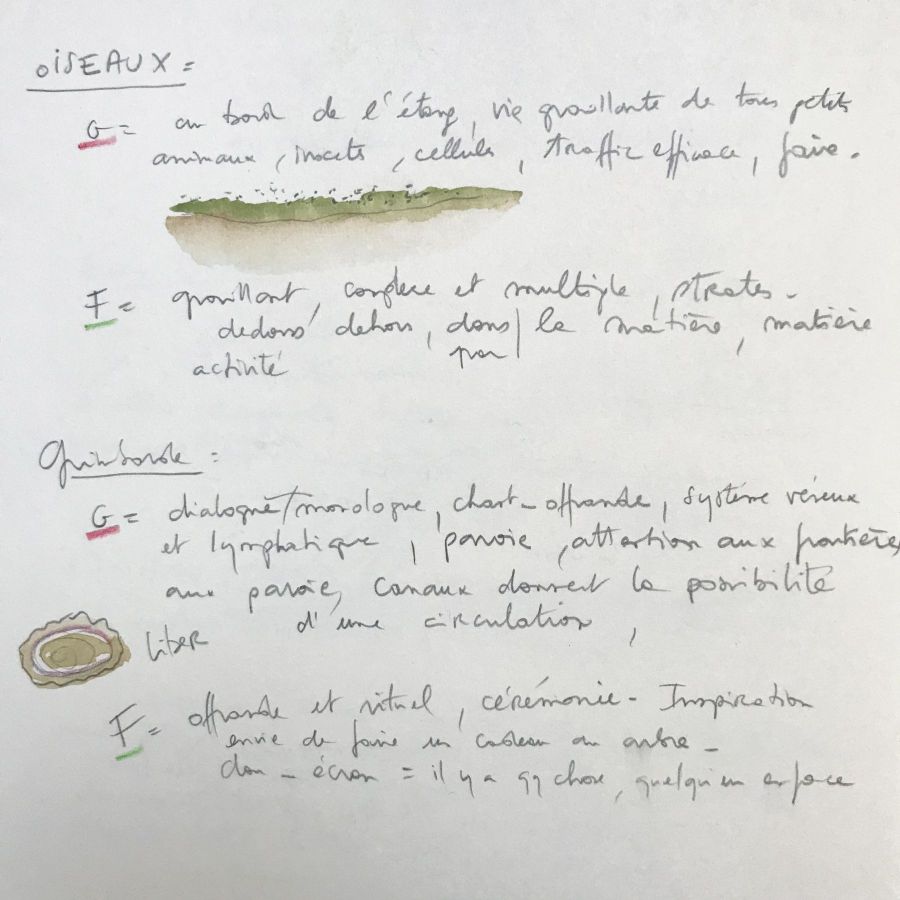 OISEAUX =
G = au bord de l'étang, vie grouillante de tous petits
animaux, insects, cellules, traffic efficace, faire.
F = grouillant, complexe et multiple, strates.
dedans dehors, dans la matière, matière
activité par
Guimbarde :
G = dialogue/monologue, chant-offrande, système véreux
et lymphatique, paroie, attention aux frontières
aux paroie, canaux donnent la possibilité
d'une circulation,
LIBER
F = offrande et rituel, cérémonie. Inspiration
envie de faire un cadeau au arbre.
don - écran = il y a qq chose, quelqu'un en face